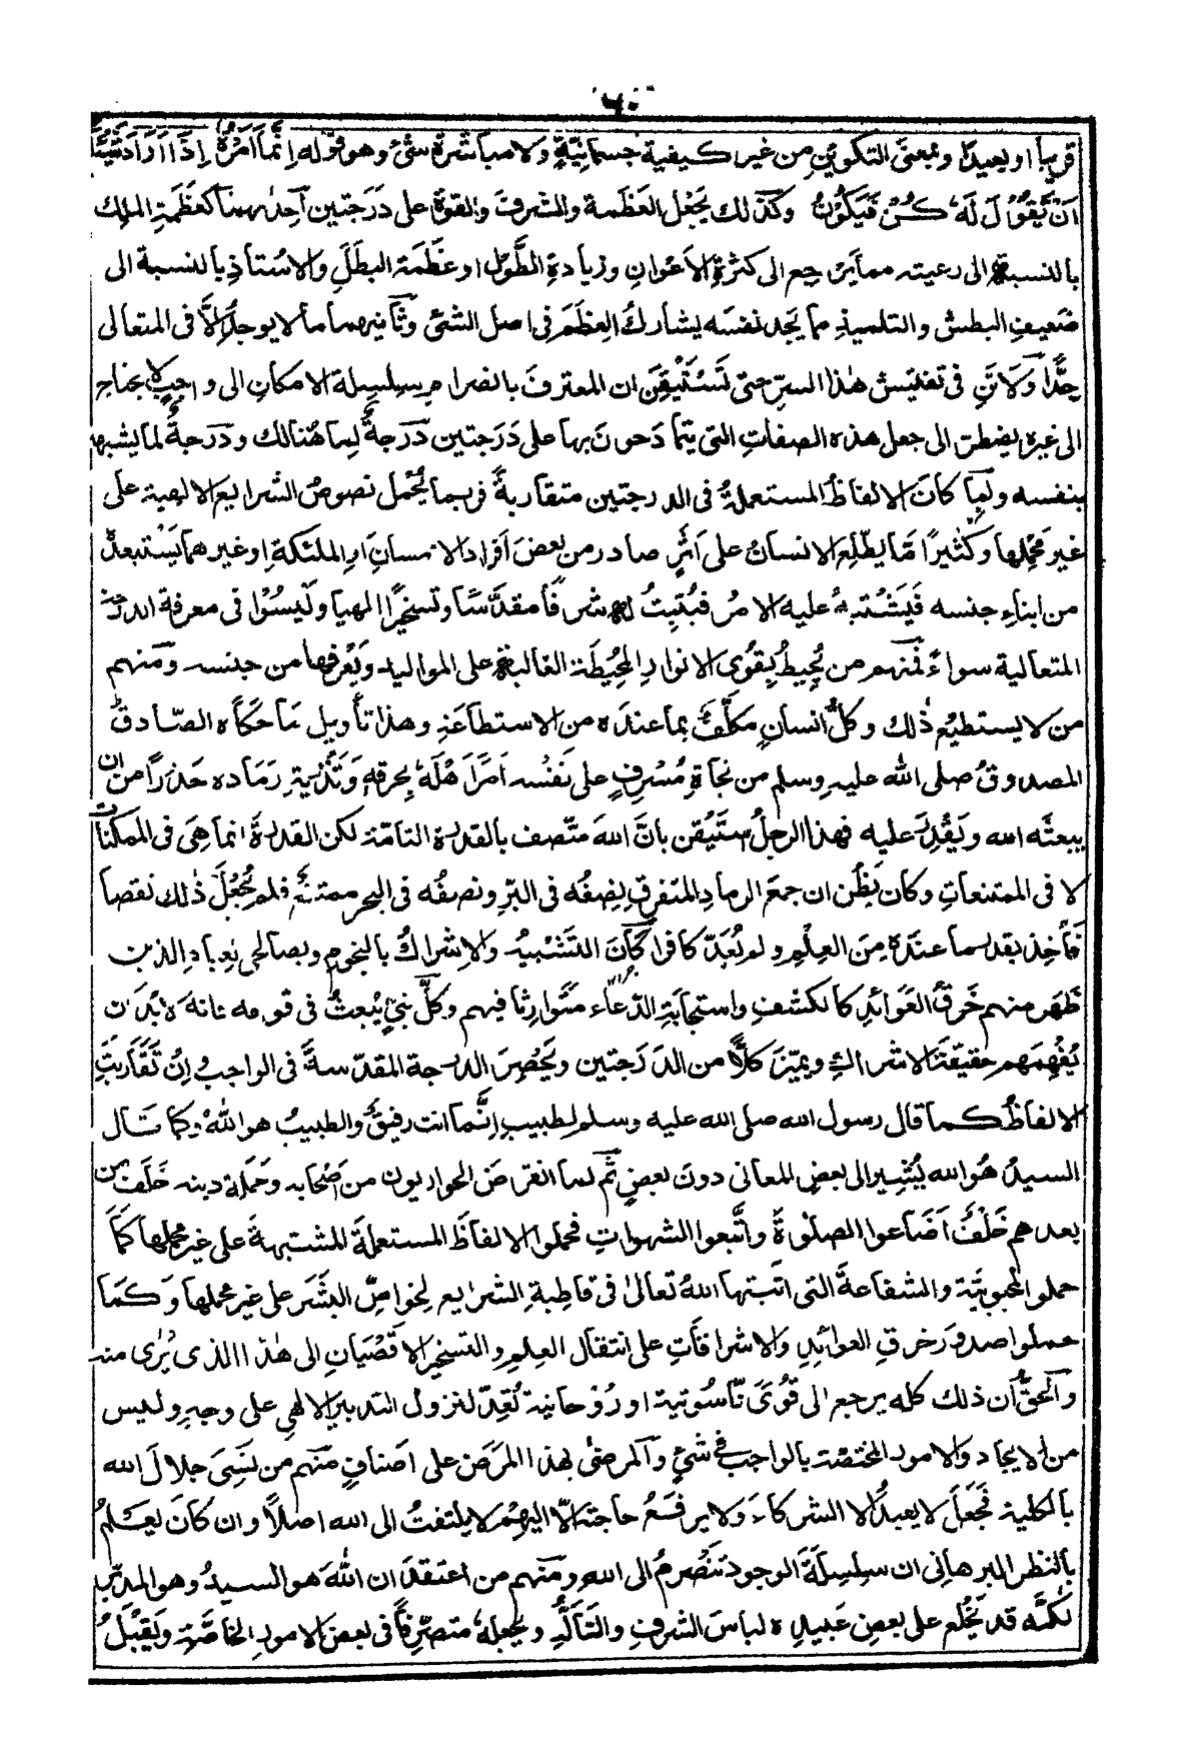 ٦٠
قريبا او بعيدا وبمعنى التكوين من غير كيفية جسمانيّةٍ ولا مباشرة شئ وهو قوله اِنَّمَا اَمْرُهُ اِذَا اَرَادَ شَيْئًا
اَنْ يَّقُوْلَ لَهٗ كُنْ فَيَكُوْنُ وكذلك يَجْعل العَظَمة والشرفَ والقوةَ على دَرَجتين اَحدٰهما كعَظَمةِ الملِك
بالنسبة الى رعيته مما يرجع الى كثرةِ الاَعْوانِ وزيادةِ الطَّوْل او عَظَمة البَطَلَ والاستاذِ بالنسبة الى
ضعيفِ البطش والتلميذِ مما يَجد نفسَه يشارك العِظَمَ فى اصل الشئ وثانيهما ما لا يوجد الَّا فى المتعالى
جِدًّا وَلَا تَنِ فى تفتيش هٰذا السرِّ حتى تَسْتَيْقِنَ ان المعترفَ بانصرام سِلسِلة الامكانِ الى واجبٍ لا يحتاج
الى غيره يضطر الى جعل هذه الصفاتِ التى يتمادَحون بها على دَرَجتين دَرجةً لِما هُنالك ودَرجةً لما يشبهها
بنفسه ولمّا كانَ الالفاظُ المستعملةُ فى الدرجتين متقاربةً فربما يُحْمل نصوصُ الشرايع الالهية على
غير مَحْمِلها وكثيرًا مّا يطّلِع الانسانُ على اَثَرٍ صادر من بعض اَفرادِ الانسانِ او الملٰئكةِ او غيرهما يَسْتبعدهٗ
من ابناءِ جنسه فيَشْتبهُ عليه الامرُ فيُثبِتُ له شرفًا مقدَّسًا وتسخيرًا الٰهيا ولَيسُوْا فى معرفة الدرجة
المتعالية سواءً فمنهم من يُحِيطُ بِقُوَى الانوارِ المُحِيطَة الغالبةِ على المواليد ويَعْرِفها من جنسه ومنهم
من لا يستطيعُ ذٰلك وكلُّ انسانٍ مكلَّفٌ بما عندَه من الاستطاعَةِ وهذا تأويل مَا حَكَاه الصّادقُ
المصدوقُ صلى الله عليه وسلم من نجاةِ مُسْرِفٍ على نَفْسه اَمَرَ اَهْلَهٗ بِحرقِهٖ وتَذْرِيةِ رَمَاده حَذرًا من ان
يبعثَه الله ويَقْدِرَ عليه فهذا الرجلُ استَيْقن بانَّ اللهَ متّصف بالقدرة التامّة لكن القدرةَ انما هِىَ فى الممكناتِ
لا فى الممتنعاتِ وكان يَظُن ان جمعَ الرمادِ المتفرقِ نِصفُه فى البرّ ونصفُه فى البحر ممتنعٌ فلم يُجْعَل ذٰلك نقصا
فاُخِذ بقدر ما عندَه مِنَ العِلْمِ ولم يُعَدّ كافرا كانَ التَشْبيهُ والاِشراكُ بالنجومِ وبصالحى العِبادِ الذين
ظَهَر منهم خَرْقُ العَوائدِ كالكشفِ واستجابةِ الدّعاء متوارِثا فيهم وكلُّ نبىٍّ يُبْعثُ فى قومه فانهٗ لا بُدَّ ان
يُفْهِمَهم حقيقةَ الاشراك ويميّزَ كلاًّ من الدَرَجتين ويَحْصِرَ الدرجة المقدّسةَ فى الواجبِ وان تَقارَبتِ
الالفاظُ كما قال رسول الله صلى الله عليه وسلم لطبيب اِنَّما انت رفيقٌ والطبيبُ هو اللهُ وكما قال
السيدُ هُوَ الله يُشِير الى بعضِ المعانى دونَ بعضٍ ثم لما انقرضَ الحواريون من اَصْحابه وحَمَلة دينه خَلَفَ من
بعدهم خَلْفٌ اَضَاعوا الصلٰوةَ واتَّبعوا الشهواتِ فحملوا الالفاظَ المستعملةَ المشتبهةَ على غير مَحملها كَمَا
حملوا المحبوبيّة والشفاعةَ التى اثبتها اللهُ تعالىٰ فى قاطبةِ الشرٰايع لِخواصِّ البَشَر على غير محملها وَكَمَا
حملوا صدورَ خرقِ العوائدِ والاشراقاتِ على انتقال العِلمِ والتسخيرِ الاَقْصَيَانِ الى هٰذا الذى يُرٰى منه
والحقُّ ان ذلك كله يرجع الى قُوًى ناسُوتية او رُوْحانية تُعِدّ لنزول التدبير الالٰهى على وجهٍ وليس
من الايجاد والامور المختصّة بالواجب فى شئٍ والمرضىٰ بهذا المَرَض على اَصنافٍ منهم من نَسِىَ جلالَ الله
بالكلية فجَعَل لا يعبدُ الا الشركاءَ ولا يرفَعُ حاجتَه الّا اليهِم لا يلتفتُ الى الله اصلاً وان كانَ يعلمُ
بالنظر البرهانى ان سِلسِلةَ الوجود تَنْصرمُ الى اللهِ ومنهم من اعتقدَ ان اللهَ هو السيدُ وهو المدبّر
لكنَّه قد يَخْلع على بعضِ عَبيدِه لباسَ الشرفِ والتَألّهِ ويَجعلهٗ متصرِّفًا فى بعض الامورِ الخاصّة ويَقْبَلُ